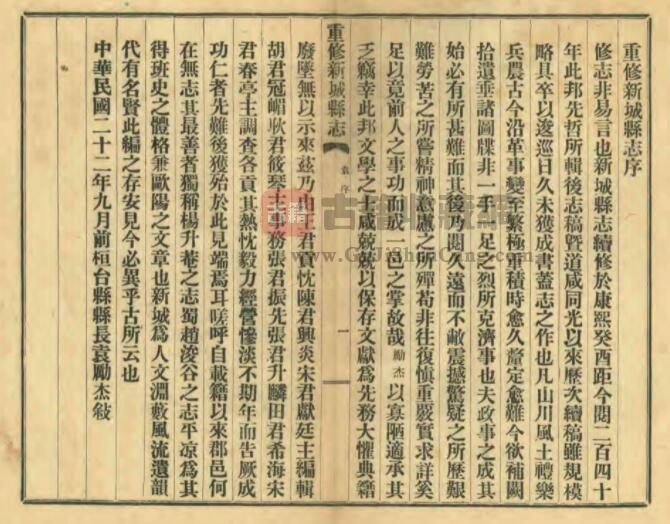 重修新城縣志序
修志非易言也新城縣志續修於康熙癸酉距今閱二百四十
年此邦先哲所輯後志稿暨道咸同光以來歷次續稿雖規模
略具卒以逡巡日久未獲成書蓋志之作也凡山川風土禮樂
兵農古今沿革事變至繁極重積時愈久釐定愈難今欲補闕
拾遺垂諸圖牒非一手一足之烈所克濟事也夫政事之成其
始必有所甚難而其後乃閱久遠而不敝震撼驚疑之所歷艱
難勞苦之所嘗精神意慮之所殫苟非往復慎重覈實求詳奚
足以竟前人之事功而成一邑之掌故哉勵杰以寡陋適承其
乏竊幸此邦文學之士咸兢兢以保存文獻爲先務大懼典籍
重修新城縣志
袁序
一
廢墜無以示來茲乃由 君 忱陳君興炎宋君獻廷主編輯
胡君冠嵋耿君筱琴主事務張君振先張君升麟田君希海宋
君春亭主調查各貢其熱忱毅力經營慘淡不期年而告厥成
功仁者先難後獲始於此見端焉耳嗟呼自載籍以來郡邑何
在無志其最善者獨稱楊升菴之志蜀趙浚谷之志平凉爲其
得班史之體格兼歐陽之文章也新城爲人文淵藪風流遺韻
代有名賢此編之存安見今必異乎古所云也
中華民國二十二年九月前桓台縣縣長袁勵杰敍
古籍
古籍收藏网
www.GuJiShouCang.com